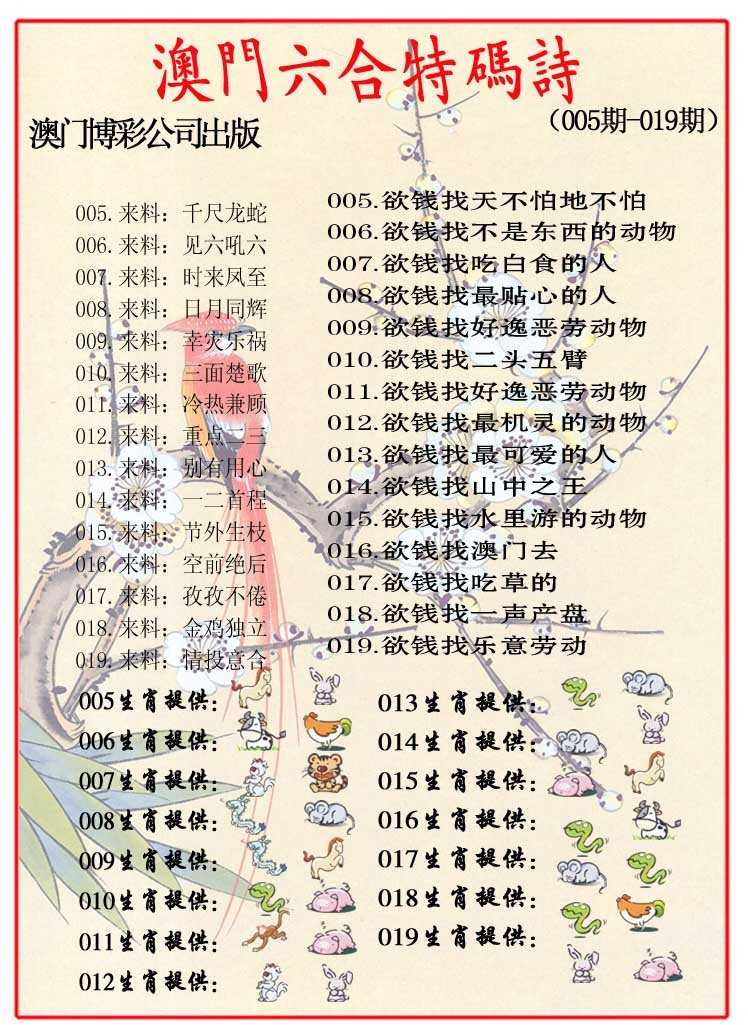 澳門六合特碼詩
澳门博彩公司出版
（005期-019期）
005.来料：千尺龙蛇
006.来料：见六吼六
007.来料：时来凤至
008.来料：日月同辉
009.来料：幸灾乐祸
010.来料：三面楚歌
011.来料：冷热兼顾
012.来料：重点二三
013.来料：别有用心
014.来料：一二首程
015.来料：节外生枝
016.来料：空前绝后
017.来料：孜孜不倦
018.来料：金鸡独立
019.来料：情投意合
005.欲钱找天不怕地不怕
006.欲钱找不是东西的动物
007.欲钱找吃白食的人
008.欲钱找最贴心的人
009.欲钱找好逸恶劳动物
010.欲钱找二头五臂
011.欲钱找好逸恶劳动物
012.欲钱找最机灵的动物
013.欲钱找最可爱的人
014.欲钱找山中之王
015.欲钱找水里游的动物
016.欲钱找澳门去
017.欲钱找吃草的
018.欲钱找一声产盘
019.欲钱找乐意劳动
005生肖提供：
006生肖提供：
007生肖提供：
008生肖提供：
009生肖提供：
010生肖提供：
011生肖提供：
012生肖提供：
013生肖提供：
014生肖提供：
015生肖提供：
016生肖提供：
017生肖提供：
018生肖提供：
019生肖提供：